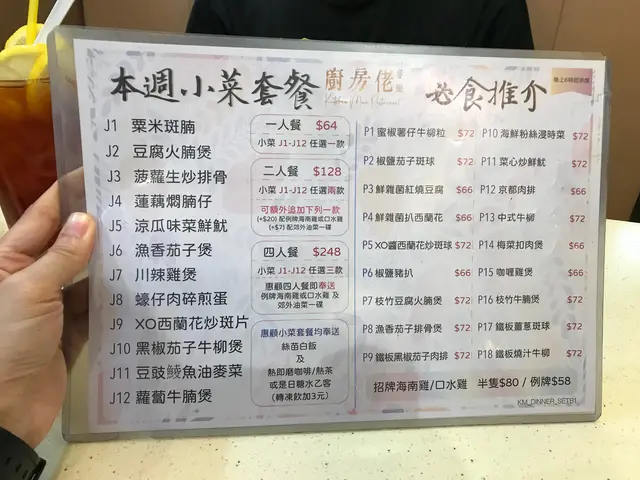 本週小菜套餐
廚房佬
薈聚
Kitchen Man Restaurant
必食推介
J1 粟米斑腩
J2 豆腐火腩煲
J3 菠蘿生炒排骨
J4 蓮藕燜腩仔
J5 涼瓜味菜鮮魷
J6 漁香茄子煲
J7 川辣雞煲
J8 蠔仔肉碎煎蛋
J9 XO西蘭花炒斑片
J10 黑椒茄子牛柳煲
J11 豆豉鯪魚油麥菜
J12 蘿蔔牛腩煲
一人餐 $64
小菜 J1-J12 任選一款
二人餐 $128
小菜 J1-J12 任選兩款
可額外追加下列一款
(+$20) 配例牌海南雞或口水雞
(+$7) 配郊外油菜一碟
四人餐 $248
小菜 J1-J12 任選三款
惠顧四人餐即奉送
例牌海南雞或口水雞 及
郊外油菜一碟
惠顧小菜套餐均奉送
絲苗白飯
及
熱即磨咖啡/熱茶
或是日糖水乙客
(轉凍飲加3元)
P1 蜜椒薯仔牛柳粒 $72
P2 椒鹽茄子斑球 $72
P3 鮮雜菌紅燒豆腐 $66
P4 鮮雜菌扒西蘭花 $66
P5 XO醬西蘭花炒斑球 $72
P6 椒鹽豬扒 $66
P7 枝竹豆腐火腩煲 $72
P8 漁香茄子排骨煲 $72
P9 鐵板黑椒茄子肉排 $72
P10 海鮮粉絲浸時菜 $72
P11 菜心炒鮮魷 $72
P12 京都肉排 $66
P13 中式牛柳 $72
P14 梅菜扣肉煲 $66
P15 咖喱雞煲 $66
P16 枝竹牛腩煲 $72
P17 鐵板薑蔥斑球 $72
P18 鐵板燒汁牛柳 $72
招牌海南雞/口水雞 半隻$80 / 例牌$58
KM_DINNER_SETB1